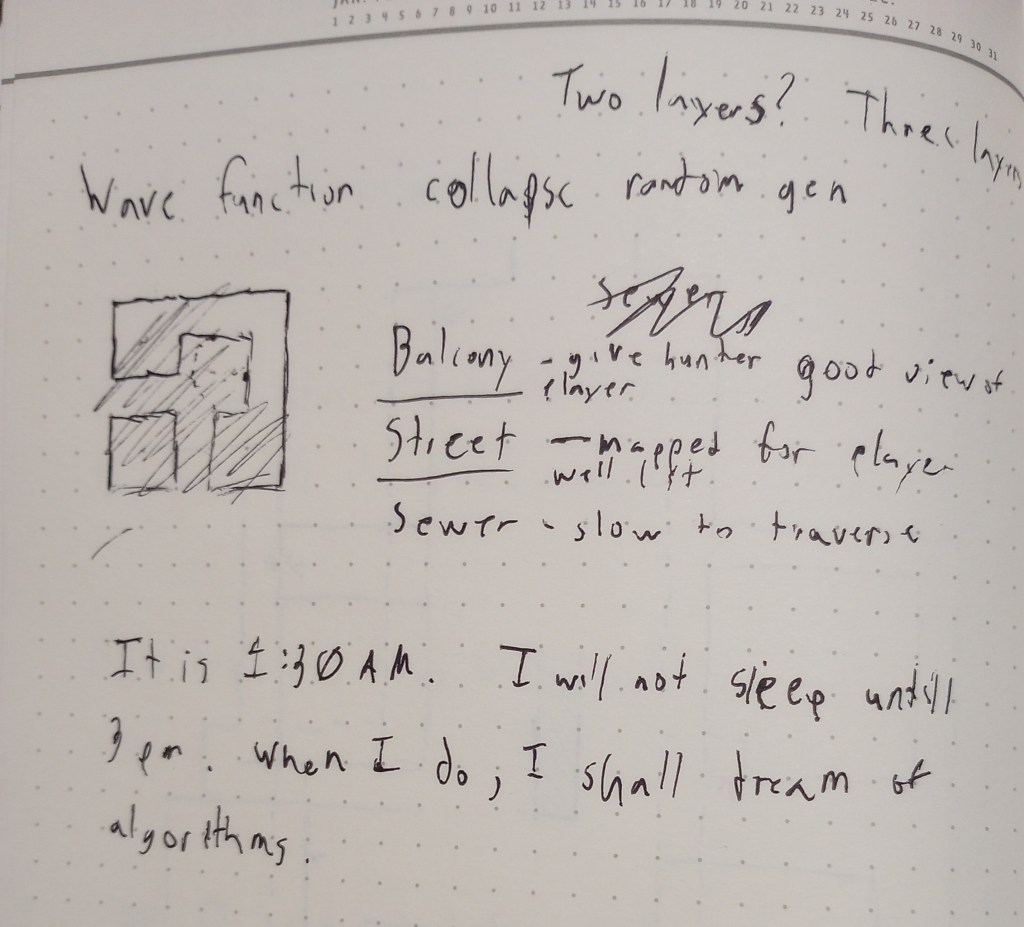 1 2 3 4 5 6 7 8 9 10 11 12 13 14 15 16 17 18 19 20 21 22 23 24 25 26 27 28 29 30 31
Two layers? Three layers
Wave function collapse random gen
Sewer
Balcony - give hunter good view of
player
Street - mapped for player
well lit
Sewer - slow to traverse
It is 1:30 AM. I will not sleep untill
3 pm. When I do, I shall dream of
algorithms.